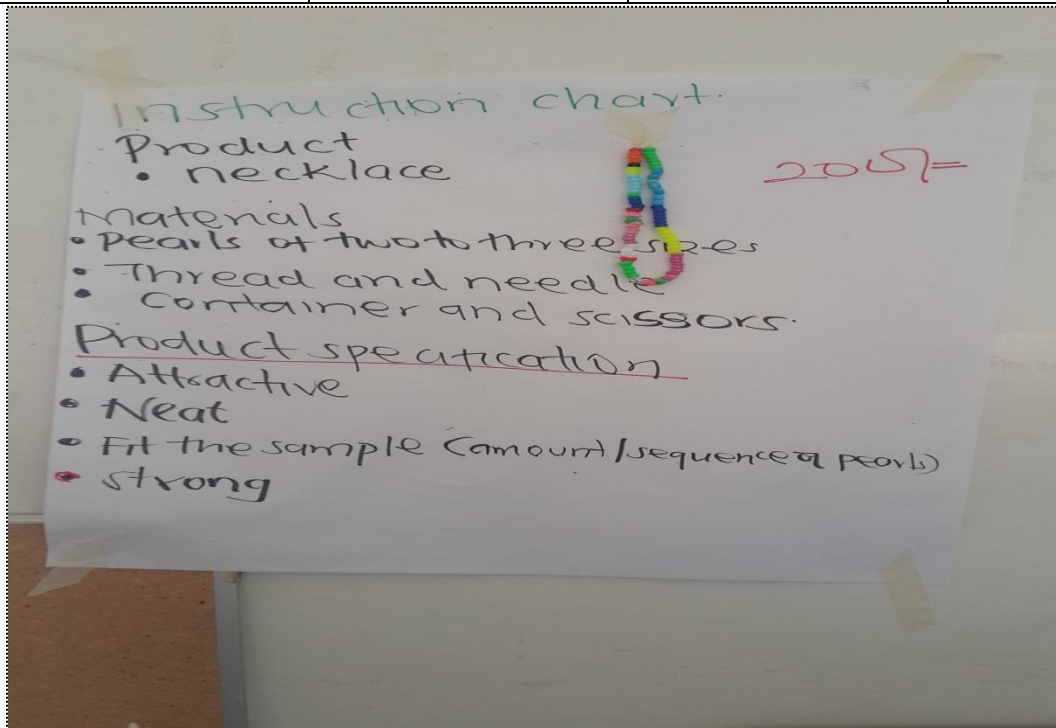 Instruction chart.
Product
• necklace
200/=
Materials
• Pearls of two to three sizes
• Thread and needle
• Container and scissors.
Product specification
• Attractive
• Neat
• Fit the sample (amount/sequence of pearls)
• Strong